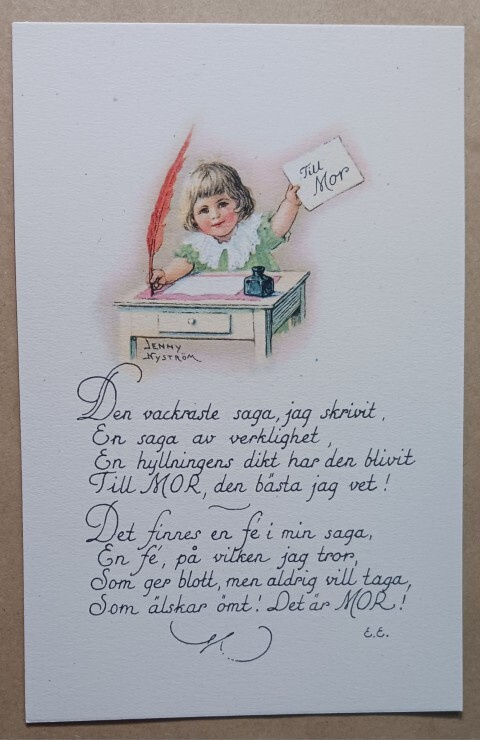 Till
Mor
JENNY
NYSTRÖM
Den vackraste saga, jag skrivit,
En saga av verklighet,
En hyllningens dikt har den blivit
Till MOR, den bästa jag vet!
Det finnes en fé i min saga,
En fé, på vilken jag tror,
Som ger blott, men aldrig vill taga,
Som älskar ömt! Det är MOR!
E.E.